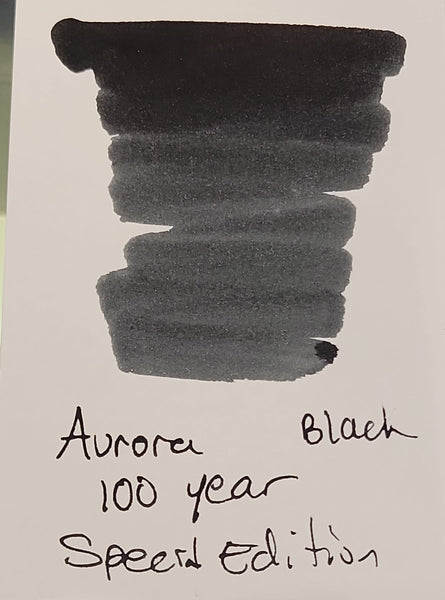 Aurora Black
100 year
Special Edition